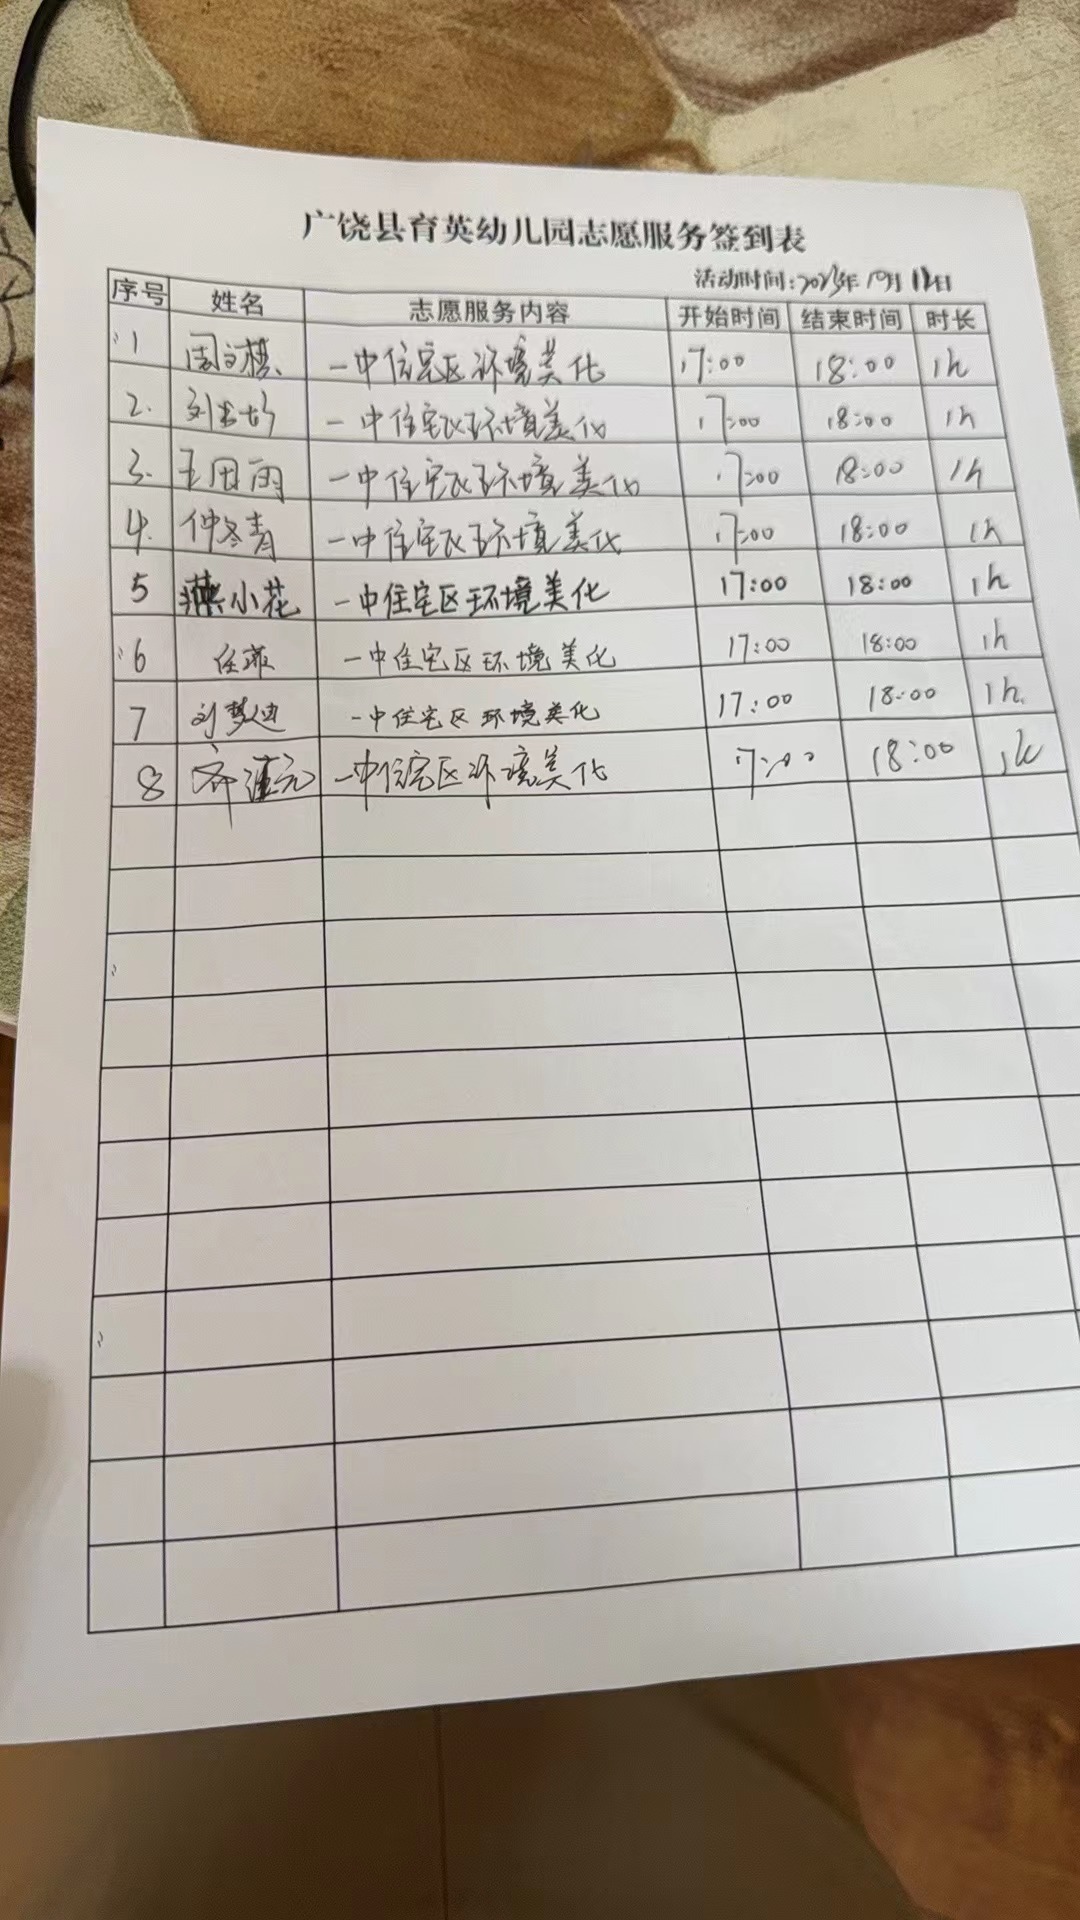 广饶县育英幼儿园志愿服务签到表
活动时间:2023年10月12日
序号 姓名 志愿服务内容 开始时间 结束时间 时长
1 周文棋 一中住宅区环境美化 17:00 18:00 1h
2. 一中住宅区环境美化 17:00 18:00 1h
3. 王田雨 一中住宅区环境美化 17:00 18:00 1h
4. 仲冬青 一中住宅区环境美化 17:00 18:00 1h
5 燕小花 一中住宅区环境美化 17:00 18:00 1h
6 任燕 一中住宅区环境美化 17:00 18:00 1h
7 刘梦迪 一中住宅区环境美化 17:00 18:00 1h
8 一中住宅区环境美化 17:00 18:00 1h